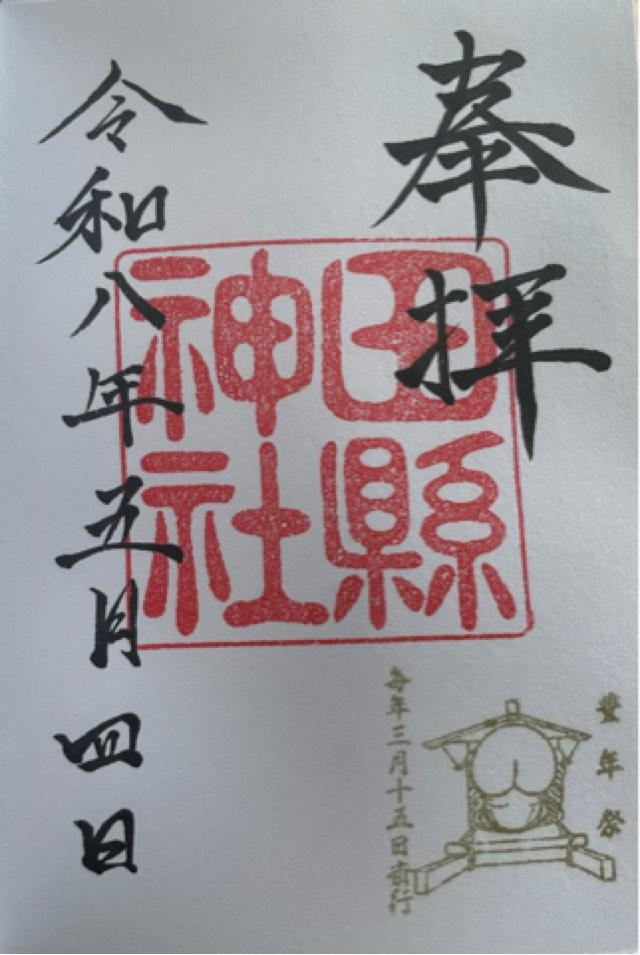 奉拝
田縣
神社
令和八年五月四日
豊年祭
毎年三月十五日斎行